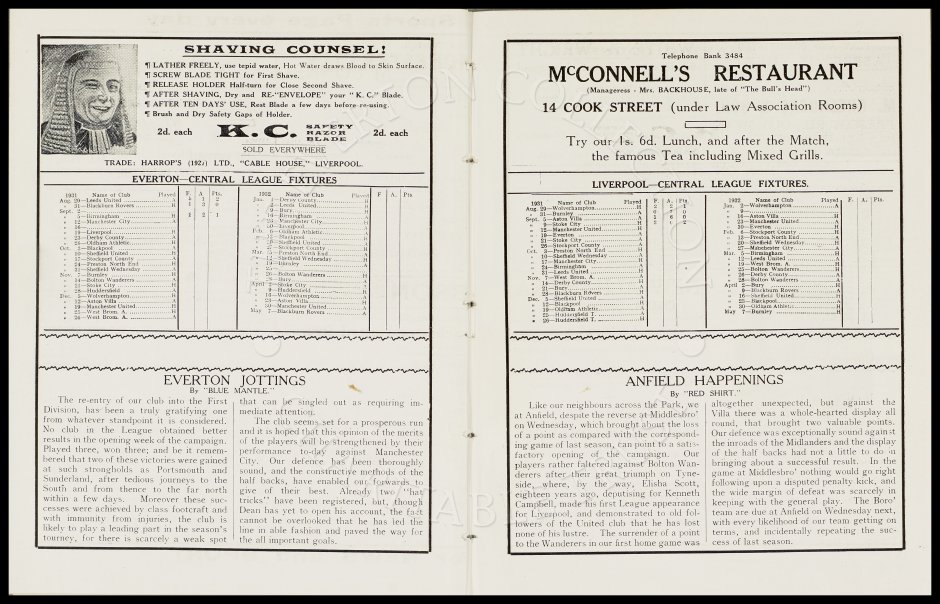 SHAVING COUNSEL!
¶ LATHER FREELY, use tepid water, Hot Water draws Blood to Skin Surface.
¶ SCREW BLADE TIGHT for First Shave.
¶ RELEASE HOLDER Half-turn for Close Second Shave.
¶ AFTER SHAVING, Dry and RE-"ENVELOPE" your "K. C." Blade.
¶ AFTER TEN DAYS' USE, Rest Blade a few days before re-using.
¶ Brush and Dry Safety Gaps of Holder.
2d. each K.C. SAFETY RAZOR BLADE 2d. each
SOLD EVERYWHERE
TRADE: HARROP'S LTD., "CABLE HOUSE," LIVERPOOL.
EVERTON—CENTRAL LEAGUE FIXTURES
1931 Name of Club Played F. A. Pts.
Aug. 29—Leeds United
„ 31—Blackburn Rovers
Sept. 2—
„ 5—Birmingham
„ 12—Manchester City
„ 16—
„ 19—Liverpool
„ 23—Derby County
„ 26—Oldham Athletic
Oct. 3—Blackpool
„ 10—Sheffield United
„ 17—Stockport County
„ 24—Preston North End
„ 31—Sheffield Wednesday
Nov. 7—Burnley
„ 14—Bolton Wanderers
„ 21—Stoke City
„ 28—Huddersfield
Dec. 5—Wolverhampton
„ 12—Aston Villa
„ 19—Manchester United
„ 25—West Brom. A.
„ 26—West Brom. A.
1932 Name of Club Played F A Pts
Jan. 1—Derby County
„ 2—Leeds United
„ 9—Bury
„ 16—Birmingham
„ 23—Manchester City
„ 30—Liverpool
Feb. 6—Oldham Athletic
„ 13—Blackpool
„ 20—Sheffield United
„ 27—Stockport County
Mar. 5—Preston North End
„ 12—Sheffield Wednesday
„ 19—Burnley
„ 26—Bolton Wanderers
„ 28—Bury
April 2—Stoke City
„ 9—Huddersfield
„ 16—Wolverhampton
„ 23—Aston Villa
„ 30—Manchester United
May 7—Blackburn Rovers
EVERTON JOTTINGS
By "BLUE MANTLE."
The re-entry of our club into the First
Division, has been a truly gratifying one
from whatever standpoint it is considered.
No club in the League obtained better
results in the opening week of the campaign.
Played three, won three; and be it remem-
bered that two of these victories were gained
at such strongholds as Portsmouth and
Sunderland, after tedious journeys to the
South and from thence to the far north
within a few days. Moreover these suc-
cesses were achieved by class footcraft and
with immunity from injuries, the club is
likely to play a leading part in the season's
tourney, for there is scarcely a weak spot
that can be singled out as requiring im-
mediate attention.
The club seems set for a prosperous run
and it is hoped that this opinion of the merits
of the players will be strengthened by their
performance to-day against Manchester
City. Our defence has been thoroughly
sound, and the constructive methods of the
half backs, have enabled our forwards to
give of their best. Already two "hat
tricks" have been registered, but, though
Dean has yet to open his account, the fact
cannot be overlooked that he has led the
line in able fashion and paved the way for
the all important goals.
Telephone Bank 3484
McCONNELL'S RESTAURANT
(Manageress - Mrs. BACKHOUSE, late of "The Bull's Head")
14 COOK STREET (under Law Association Rooms)
Try our 1s. 6d. Lunch, and after the Match,
the famous Tea including Mixed Grills.
LIVERPOOL—CENTRAL LEAGUE FIXTURES.
1931 Name of Club Played F. A. Pts.
Aug. 29—Wolverhampton
„ 31—Burnley
Sept. 5—Aston Villa
„ 9—Stoke City
„ 12—Manchester United
„ 19—Everton
„ 21—Stoke City
„ 26—Stockport County
Oct. 3—Preston North End
„ 10—Sheffield Wednesday
„ 17—Manchester City
„ 24—Birmingham
„ 31—Leeds United
Nov. 7—West Brom. A.
„ 14—Derby County
„ 21—Bury
„ 28—Blackburn Rovers
Dec. 5—Sheffield United
„ 12—Blackpool
„ 19—Oldham Athletic
„ 25—Huddersfield T.
„ 26—Huddersfield T.
1932 Name of Club Played F. A. Pts.
Jan. 2—Wolverhampton
„ 16—Aston Villa
„ 23—Manchester United
„ 30—Everton
Feb. 6—Stockport County
„ 13—Preston North End
„ 20—Sheffield Wednesday
„ 27—Manchester City
Mar. 5—Birmingham
„ 12—Leeds United
„ 19—West Brom. A.
„ 25—Bolton Wanderers
„ 26—Derby County
„ 28—Bolton Wanderers
April 2—Bury
„ 9—Blackburn Rovers
„ 16—Sheffield United
„ 23—Blackpool
„ 30—Oldham Athletic
May 7—Burnley
ANFIELD HAPPENINGS
By "RED SHIRT."
Like our neighbours across the Park, we
at Anfield, despite the reverse at Middlesbro'
on Wednesday, which brought about the loss
of a point as compared with the correspond-
ing game of last season, can point to a satis-
factory opening of the campaign. Our
players rather faltered against Bolton Wan-
derers after their great triumph on Tyne-
side, where, by the way, Elisha Scott,
eighteen years ago, deputising for Kenneth
Campbell, made his first League appearance
for Liverpool, and demonstrated to old fol-
lowers of the United club that he has lost
none of his lustre. The surrender of a point
to the Wanderers in our first home game was
altogether unexpected, but against the
Villa there was a whole-hearted display all
round, that brought two valuable points.
Our defence was exceptionally sound against
the inroads of the Midlanders and the display
of the half backs had not a little to do in
bringing about a successful result. In the
game at Middlesbro' nothing would go right
following upon a disputed penalty kick, and
the wide margin of defeat was scarcely in
keeping with the general play. The Boro'
team are due at Anfield on Wednesday next,
with every likelihood of our team getting on
terms, and incidentally repeating the suc-
cess of last season.